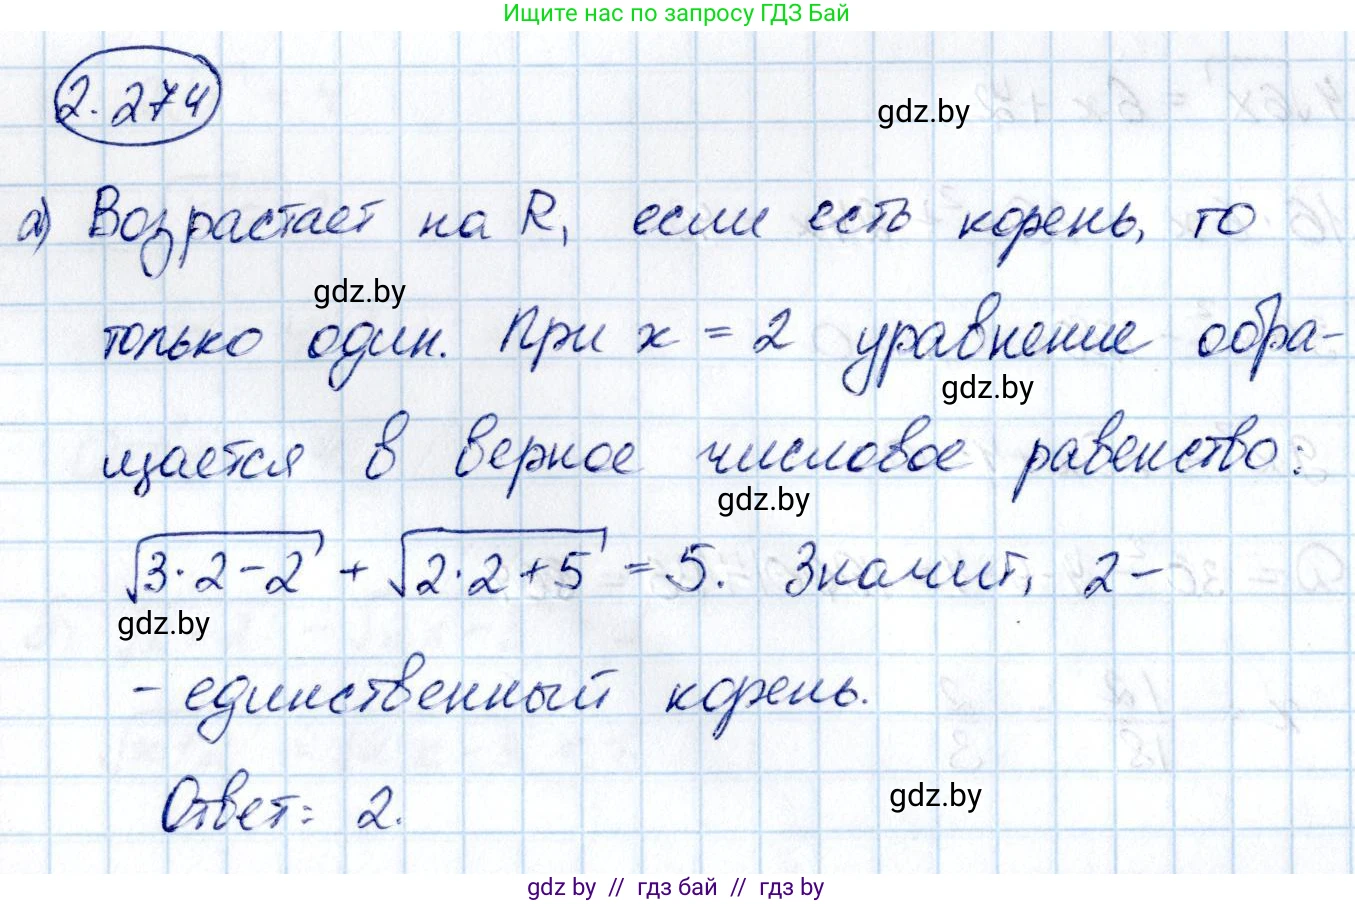 Ищите нас по запросу ГДЗ Бай
2.274
gdz.by
а) Возрастает на R, если есть корень, то
gdz.by
только один. При x = 2 уравнение обра-
gdz.by
щается в верное числовое равенство:
gdz.by
√3·2-2 + √2·2+5 = 5. Значит, 2 -
gdz.by
- единственный корень.
gdz.by
Ответ: 2.
gdz.by // гдз бай // гдз by